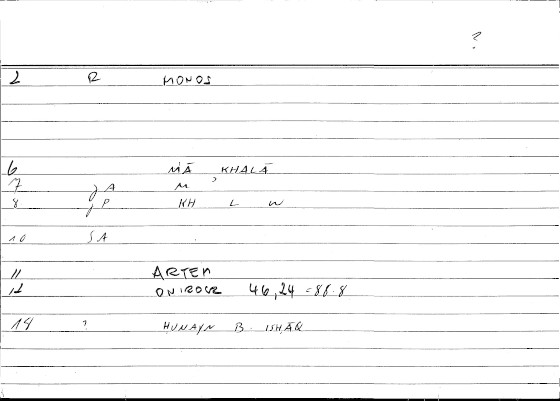 ?
2 R MONOS
6 MĀ KHALĀ
7 g A M
8 g P KH L W
10 S A
11 ARTEM
12 ONIROCR 46,24 = 88.8
14 ? HUNAYN B. ISḤĀQ